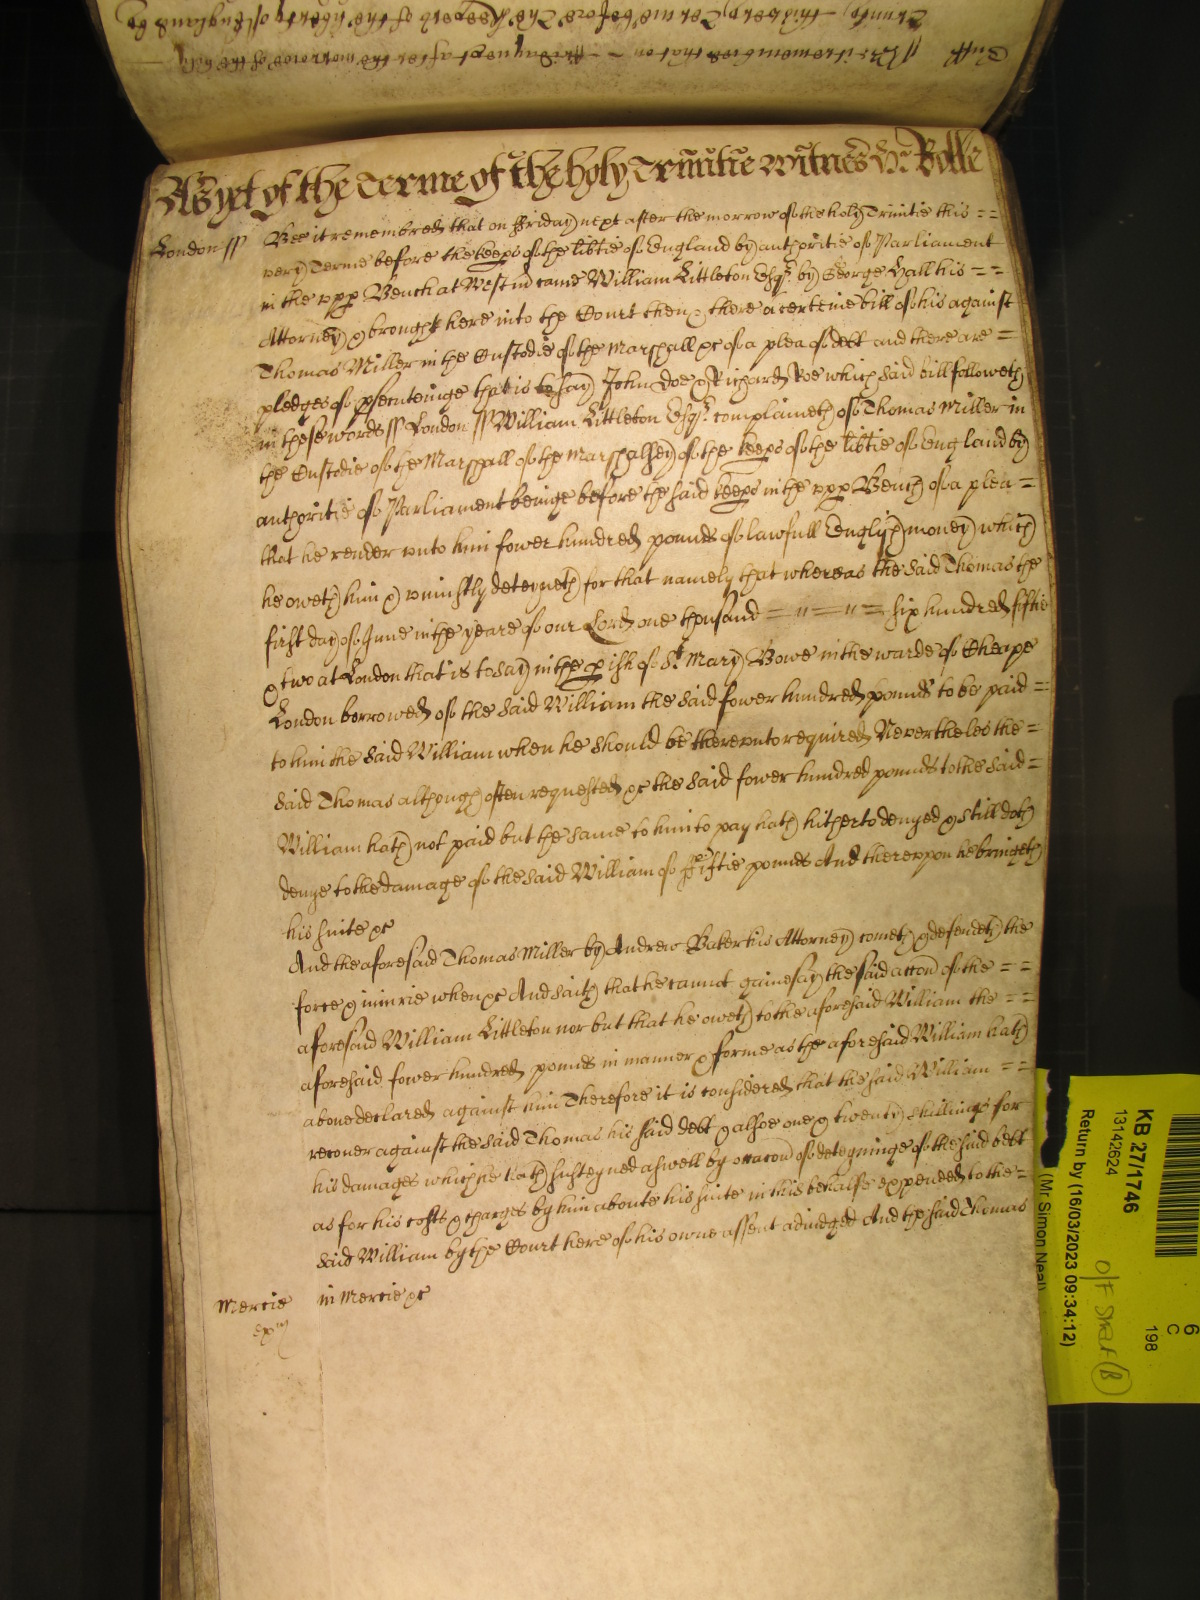 Trinity this very Terme before the Keepers of the liberty of England by
Suff ss Bee it remembred that on Friday next after the morrow of the holy
As yet of the Terme of the holy Trinitie witnes H: Rolle
London ss Bee it remembred that on Friday next after the morrow of the holy Trinitie this = =
very Terme before the keeps of the libtie of England by authoritie of Parliament
in the vpp Bench at Westm came William Littleton Esqr. by George Hall his = =
Attorney & brought here into the Court then & there a certeine bill of his against
Thomas Miller in the Custodie of the Marshall &c of a plea of debt and there are =
pledges of psecuteinge that is to say John Doe & Richard Roe which said bill followeth
in these words ss London ss William Littleton Esqr. complaineth of Thomas Miller in
the Custodie of the Marshall of the Marshalsey of the keeps of the libtie of England by
authoritie of Parliament beinge before the said keeps in the vpp Bench of a plea =
that he render vnto him fower hundred pounds of lawfull English money which
he oweth him & vniustly deteyneth for that namely that whereas the said Thomas the
first day of June in the yeare of our Lord one thousand = " = " = six hundred fiftie
& two at London that is to say in the pish of St Mary Bowe in the warde of Cheape
London borrowed of the said William the said fower hundred pounds to be paid =
to him the said William when he should be therevnto required Neverthelesthe =
said Thomas although often requested &c the said fower hundred pounds to the said =
William hath not paid but the same to him to pay hath hitherto denyed & still doth
denye to the damage of the said William of fiftie pounds And therevpon he bringeth
his suite &c
And the aforesaid Thomas Miller by Andrew Baker his Attorney cometh & defendeth the
force & iniurie when &c And saith that he cannot gainesay the said accon of the = =
aforesaid William Littleton nor but that he oweth to the aforesaid William the = =
aforesaid fower hundred pounds in manner & forme as the aforesaid William hath
aboue declared against him Therefore it is considered that the said William = =
recouer against the said Thomas his said debt & alsoe one & twenty shillings for
his damages which he hath susteyned aswell by occacon of deteyninge of the said debt
as for his costs & charges by him aboute his suite in this behalfe expended to the =
said William by the Court here of his owne assent adiudged And the said Thomas
Mercie in Mercie &c
exr
KB 27/1746
13142624
Return by (16/03/2023 09:34:12)
(Mr Simon Neal)
6
C
198
O/F Shelf (B)